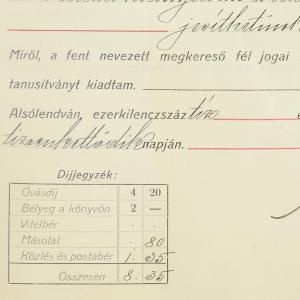 jevíthetünk
Miről, a fent nevezett megkereső fél jogai
tanusitványt kiadtam.
Alsólendván, ezerkilenczszáz tíz
tizenkettődik napján.
Díjjegyzék:
Óvásdíj 4 20
Bélyeg a könyvön 2 —
Vitelbér . .
Másolat . 80
Közlés és postabér 1. 35
Összesen 8. 35